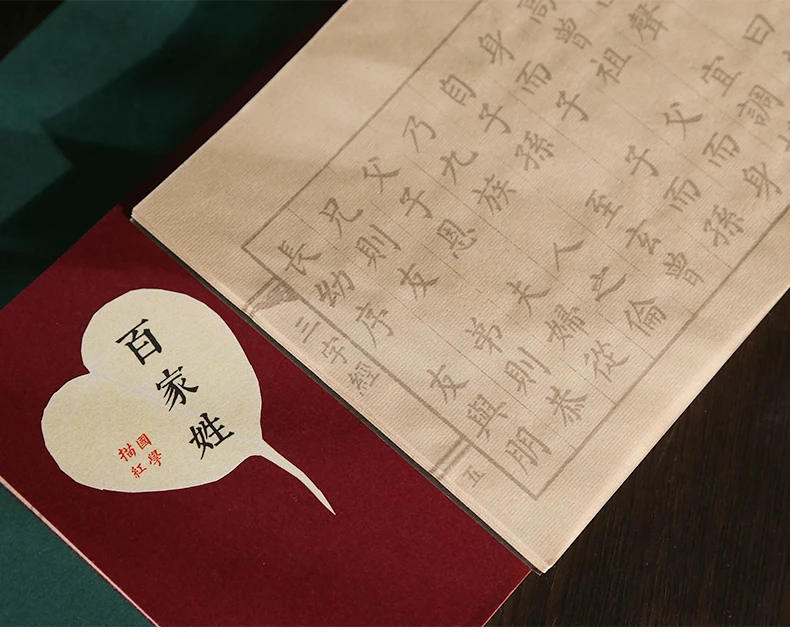 曰
聲 宜調
高曾祖 父而身
身而子 子而孫
自子孫 至玄曾
乃九族 人之倫
父子恩 夫婦從
兄則友 弟則恭
長幼序 友與朋
三字經
五
百家姓
國學
描紅